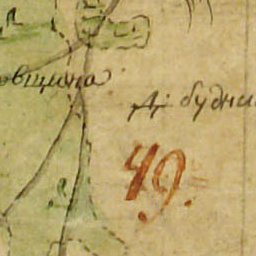 овщина
Д: будни
49.